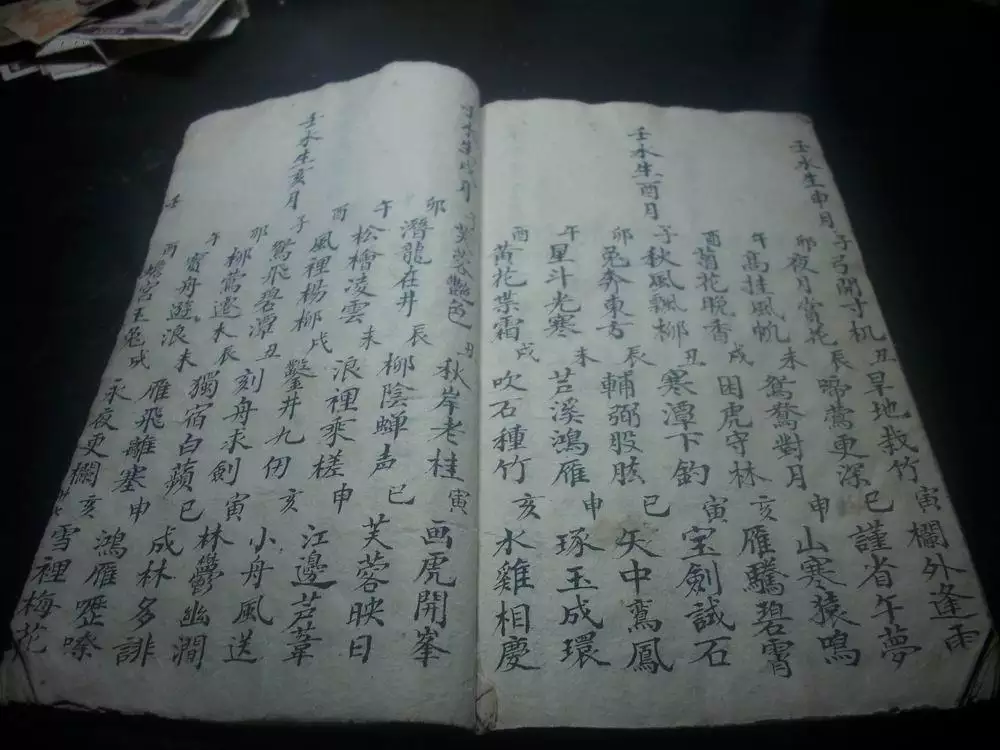 壬水生申月
子弓開寸机 丑旱地栽竹 寅欄外逢雨
卯夜月賞花 辰啼鶯更深 巳謹省午夢
午高挂風帆 未鴛鴦對月 申山寒猿鳴
酉菊花晚香 戌困虎守林 亥雁騰碧霄
壬水生酉月
子秋風飄柳 丑寒潭下釣 寅宝劍試石
卯兔奔東方 辰輔弼股肱 巳矢中鸞鳳
午星斗光寒 未芦溪鴻雁 申琢玉成環
酉黃花葉霜 戌吹石種竹 亥水雞相慶
壬水生戌月
芙蓉艷色 丑秋岸老桂 寅画虎開峯
卯潛龍在井 辰柳陰蟬声 巳芙蓉映日
午松檜凌雲 未浪裡乘槎 申江邊芦葦
酉風裡楊柳 戌鑿井九仞 亥小舟風送
壬水生亥月
子鴛飛碧潭 丑刻舟求劍 寅林鬱幽澗
卯柳鶯遷木 辰獨宿白蘋 巳成林多誹
午寶舟遊浪 未雁飛離塞 申鴻雁嚦嗦
酉蟾宮玉兔 戌永夜更欄 亥雪裡梅花
壬